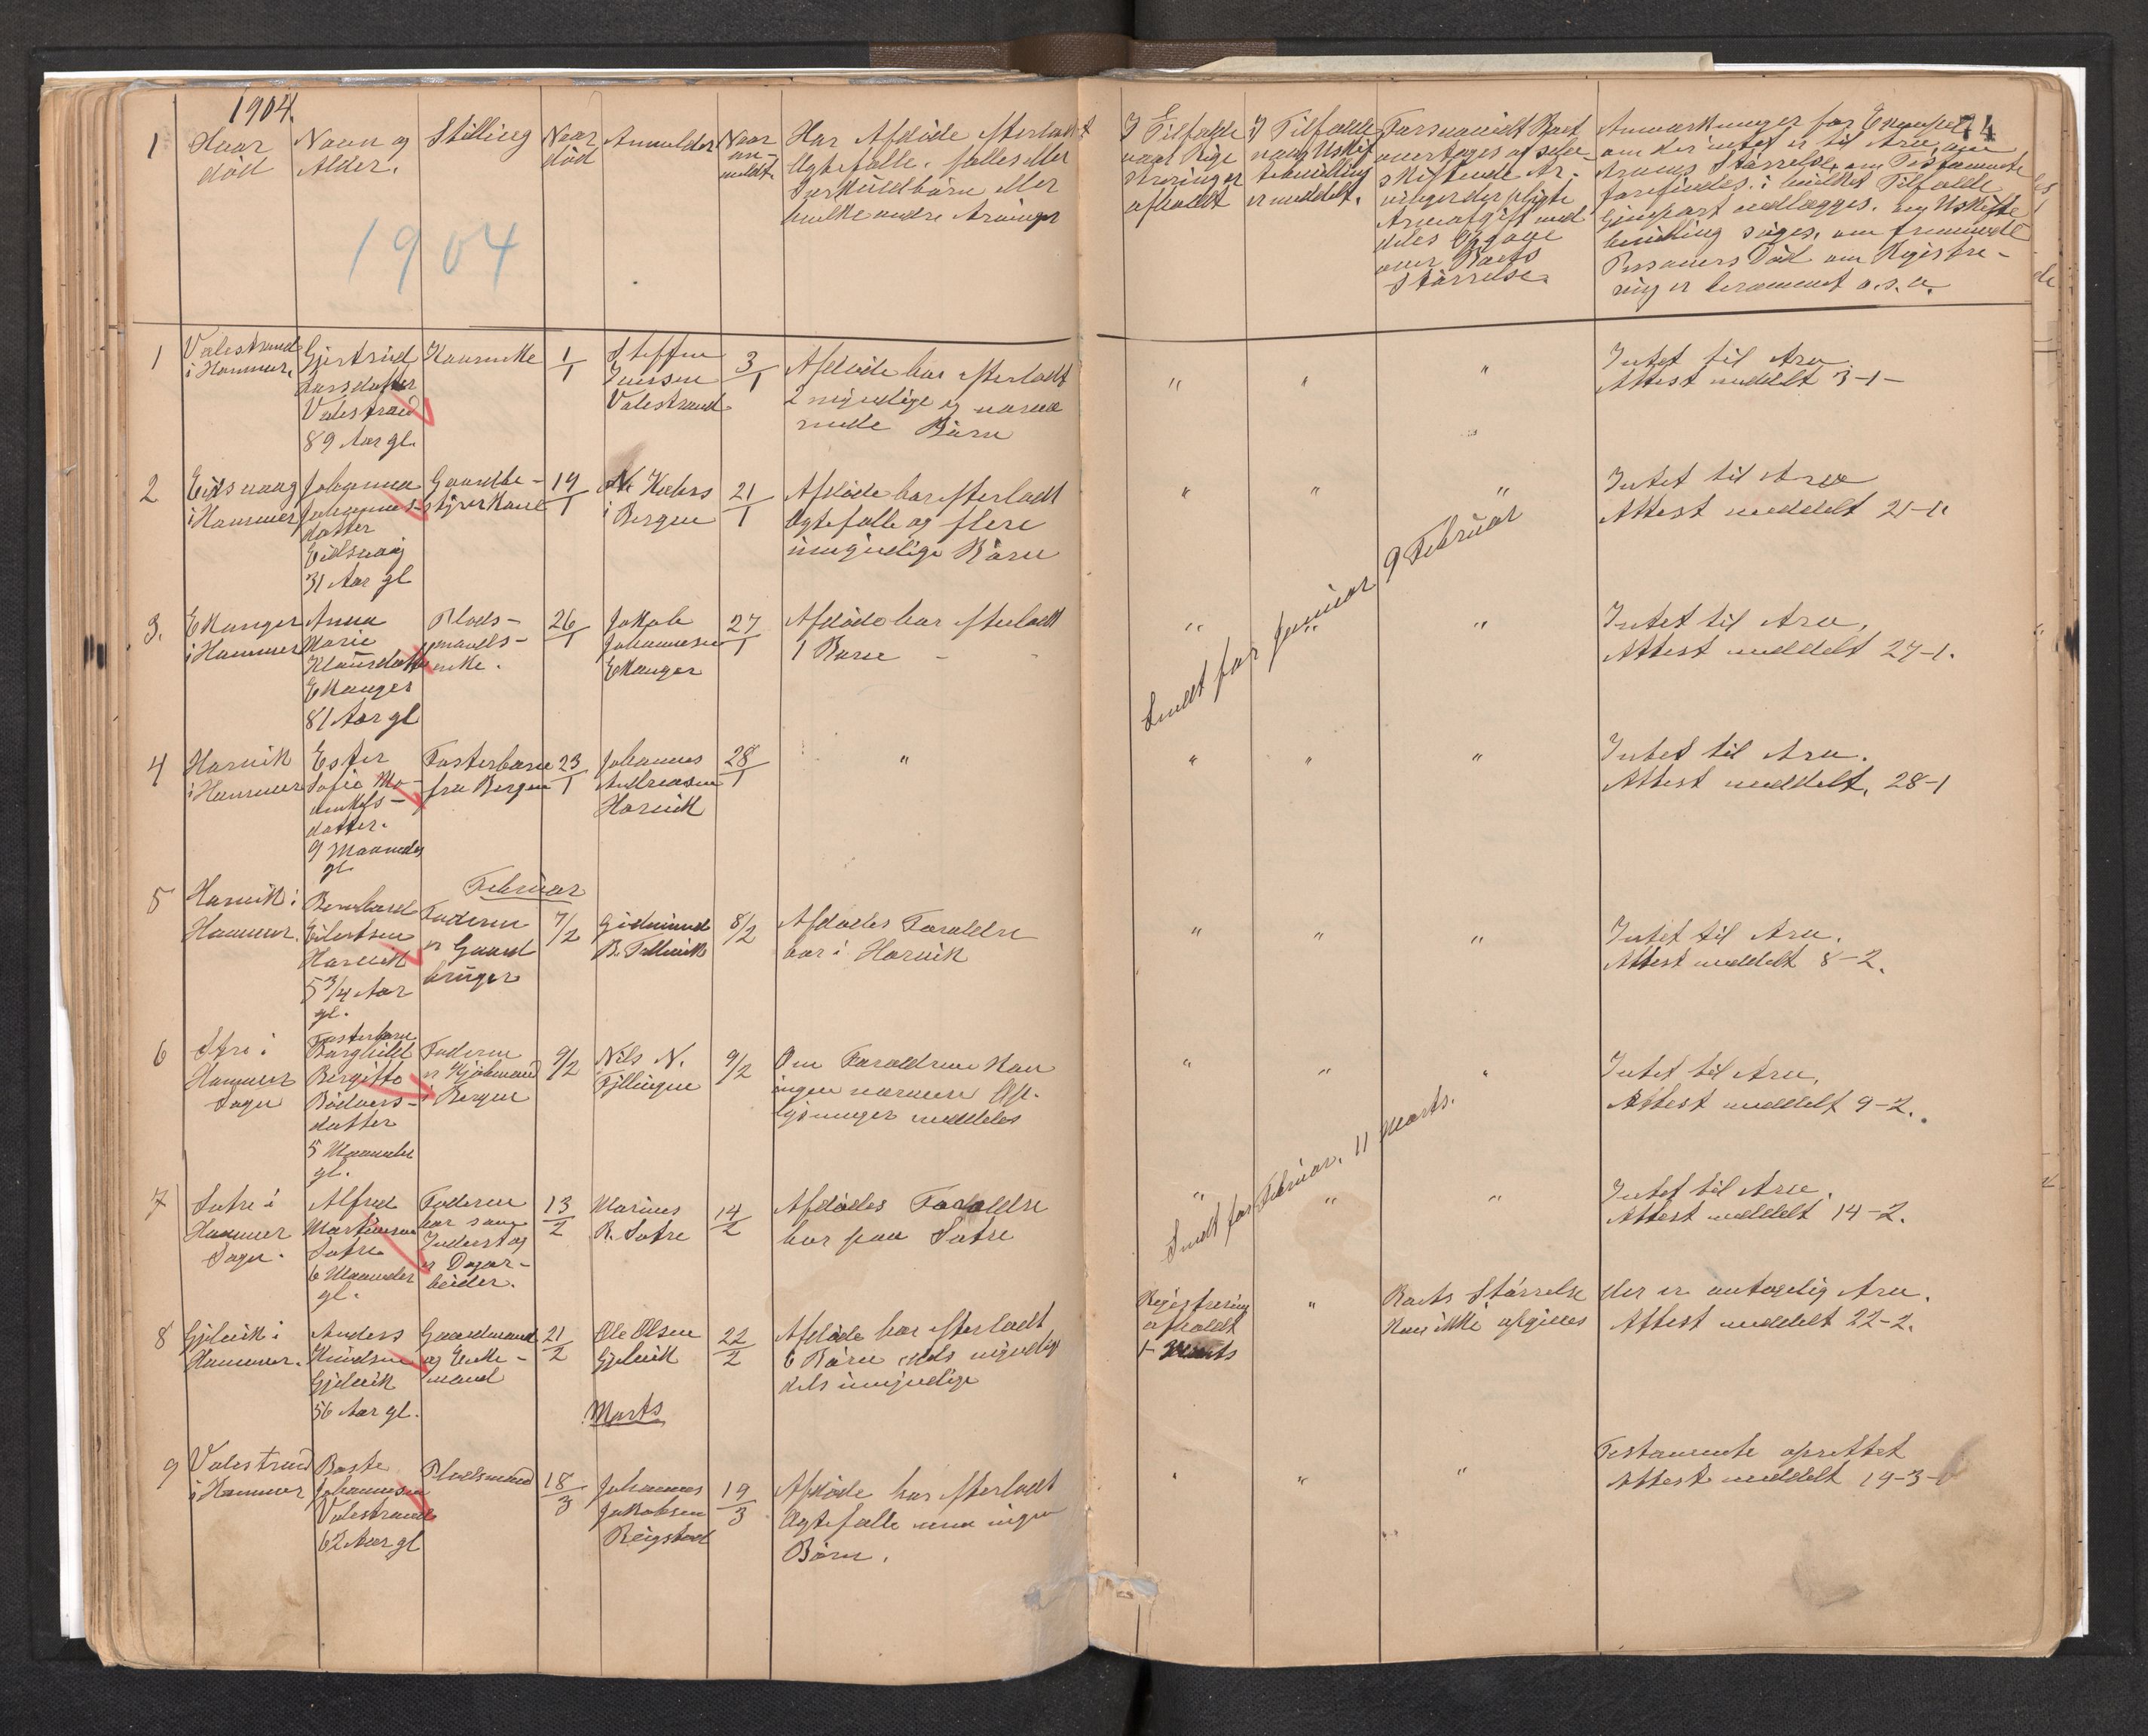 1904.
74
1
Hvor
død
Navn og
Alder.
Stilling
Naar
død
Anmelder
Naar
an-
meldt
Har Afdøde efterladt
Ægtefælle, fælles eller
Særkuldbørn eller
hvilke andre Arvinger
I Tilfælde
naar Regi
strering er
afholdt
I Tilfælde
naar Uskif
tebevilling
er meddelt.
Forsaavidt Boet
overtages af selv-
skiftende Ar-
vinger der pligte
Arveafgift med
deles Opgave
over Boets
Størrelse.
Anmærkninger for Exempel
om der intet er til Arv, om
Arvens Størrelse, om Testamente
forefindes, i hvilket Tilfælde
Gjenpart vedlægges, og Uskifte
bevilling søges, om fremmede
Personers Død om Registre-
ring er berammet o.s.v.
1904
1
Valestrand
i Hammer.
Gjertrud
Larsdatter
Valestrand
89 Aar gl.
Kaarenke
1/1
Steffen
Iversen
Valestrand.
3/1
Afdøde har efterladt
2 myndige og nærvæ
rende Børn
" " "
Intet til Arv.
Attest meddelt 3-1-
2
Eidsvaag
i Hammer
Johanna
Johannes-
datter
Eidsvaag
31 Aar gl
Gaardbe-
styrerkone
19/1
i Bergen
21/1
Afdøde har efterladt
Ægtefælle og flere
umyndige Børn
" " "
Intet til Arv
Attest meddelt 21-1.
Sendt for Januar 9 Februar
3.
Eknanger
i Hammer
Anna
Marie
Klausdatter
Eknanger
81 Aar gl
Plads-
mands-
enke.
26/1
Jakob
Johannesen
Eknanger
27/1
Afdøde har efterladt
1 Barn - -
" " "
Intet til Arv.
Attest meddelt 27-1.
4
Horvik
i Hammer
Ester
Sofie
datter.
9 Maaneder
gl.
Fosterbarn
fra Bergen
23/1
Johannes
Andreasen
Horvik
28/1
"
" " "
Intet til Arv.
Attest meddelt. 28-1
Februar
5
Horvik i
Hammer.
Bernhard
Eilertsen
Horvik
5 3/4 Aar
gl.
Faderen
er Gaard
bruger
7/2
Gudmund
B. Tellevik
8/2
Afdødes Forældre
bor i Horvik
" " "
Intet til Arv.
Attest meddelt 8-2.
6
Ytre i
Hammer
Sogn
Fosterbarn
Borghild
Birgitte
Bødvers-
datter
5 Maaneder
gl.
Faderen
er Kjøbmand
i Bergen
9/2
Nils N.
Fyllingen
9/2
Om Forældrene kan
ingen nærmere Op-
lysninger meddeles
" " "
Intet til Arv.
Attest meddelt 9-2.
Sendt for Februar. 11 Marts.
7
Sætre i
Hammer
Sogn.
Alfred
Martinsen
Sætre
6 Maaneder
gl.
Faderen
bor som
Inderst og
er Dagar-
beider.
13/2
Marius
R. Sætre
14/2
Afdødes Forældre
bor paa Sætre
" " "
Intet til Arv.
Attest meddelt 14-2.
8
Gjelvik i
Hammer.
Anders
Knudsen
Gjelvik
56 Aar gl.
Gaardmand
og Enke-
mand
21/2
Ole Olsen
Gjelvik
22/2
Afdøde har efterladt
6 Børn dels myndige
dels umyndige
Registrering
afholdt
1 Marts
"
Boets Størrelse
kan ikke opgives
der er antagelig Arv.
Attest meddelt 22-2.
Marts
9
Valestrand
i Hammer
Baste
Johannesen
Valestrand
62 Aar gl
Pladsmand
18/3
Johannes
Jakobsen
Reigstad
19/3
Afdøde har efterladt
Ægtefælle men ingen
Børn.
" " "
Testamente oprettet
Attest meddelt 19-3-